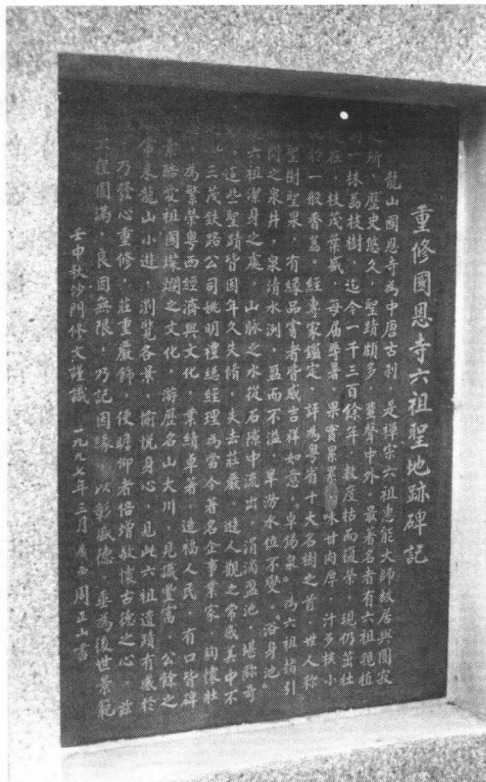 重修國恩寺六祖聖地跡碑記
龍山國恩寺為中唐古刹，是禪宗六祖惠能大師故居與圓寂
之所，歷史悠久，聖蹟頗多，蜚聲中外，最著名者有六祖親植
的一株荔枝樹，迄今一千三百餘年，數度枯而復榮，現仍茁壯
在，枝茂葉盛，每屆犖暑，果實累累，味甘肉厚，汁多核小
於一般香荔，經專家鑑定，評為粵省十大名樹之首，世人称
聖樹聖果，有緣品嘗者皆感吉祥如意，卓锡泉。為六祖指引
開之泉井，泉清水洌，盈而不溢，旱澇水位不變，浴身池。
六祖潔身之處，山脉之水從石隙中流出，涓滴盈池，堪称奇
，這些聖蹟皆因年久失脩，失去莊嚴，遊人觀之常感美中不
。三茂鉄路公司姚明禮總經理為當今著名企事業家，胸懷壯
，為繁榮粵西經濟與文化，業績卓著，造福人民，有口皆碑
素酷愛祖國璨斕之文化，游歷名山大川，見識豐富，公餘之
常來龍山小遊，瀏覽各景，愉悦身心，見此六祖遺蹟有感於
乃發心重修，莊重嚴飾，使瞻仰者倍增敬懷古德之心，茲
工程圓滿，良因無限，乃記因緣，以彰盛德，垂為後世景範
壬申秋沙門修文謹識 一九九七年三月 周正山書